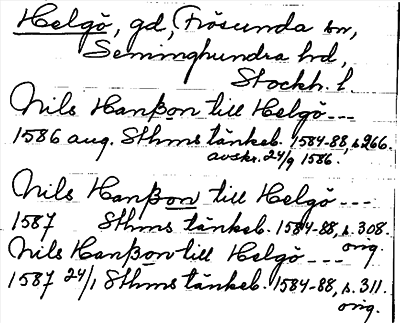 Helgö, gd, Frösunda sn,
Seminghundra hd,
Stockh. l.
Nils Hanßon till Helgö ---
1586 aug. Sthms tänkeb. 1584-88, s. 266.
avskr. 24/9 1586.
Nils Hanßon till Helgö ---
1587 Sthms tänkeb. 1584-88, s. 308.
orig.
Nils Hanßon till Helgö ---
1587 24/1 Sthms tänkeb. 1584-88, s. 311.
orig.